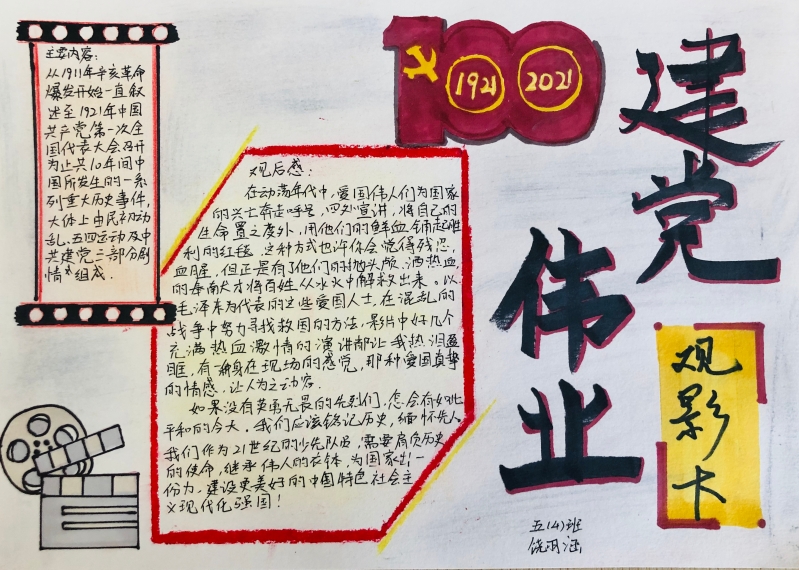 100
1921
2021
建党
伟业
观影卡
主要内容:
从1911年辛亥革命
爆发开始一直叙
述至1921年中国
共产党第一次全
国代表大会召开
为止共10年间中
国所发生的一系
列重大历史事件,
大体上由民初动
乱、五四运动及中
共建党三部分剧
情组成.
观后感:
在动荡年代中,爱国伟人们为国家
的兴亡奔走呼号,四处宣讲,将自己的
生命置之度外,用他们的鲜血铺起胜
利的红毯.这种方式也许你会觉得残忍,
血腥,但正是有了他们的抛头颅、洒热血
的奉献才将百姓从水火中解救出来.以
毛泽东为代表的这些爱国人士,在混乱的
战争中努力寻找救国的方法,影片中好几个
充满热血激情的演讲都让我热泪盈
眶,有一种身在现场的感觉,那种爱国真挚
的情感,让人为之动容.
如果没有英勇无畏的先烈们,怎会有如此
平和的今天.我们应该铭记历史,缅怀先人.
我们作为21世纪的少先队员,需要肩负历史
的使命,继承伟人的衣钵,为国家出一
份力.建设更美好的中国特色社会主
义现代化强国!
五(4)班
饶
涵